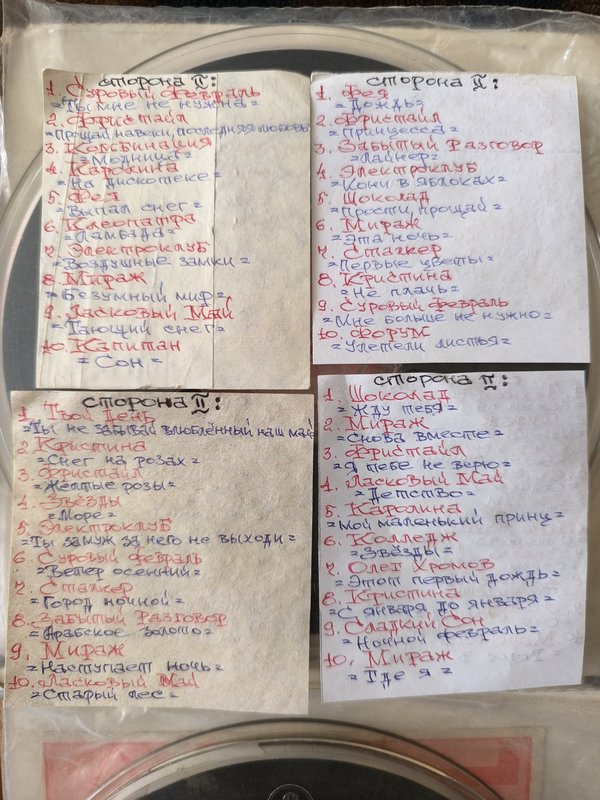 сторона II:
1. Суровый Февраль
=Ты мне не нужна=
2. Фристайл
=Прощай навеки, последняя любовь=
3. Комбинация
=Модница=
4. Каролина
=На дискотеке=
5. Фея
=Выпал снег=
6. Клеопатра
=Ламбада=
7. Электроклуб
=Воздушные замки=
8. Мираж
=Безумный мир=
9. Ласковый Май
=Тающий снег=
10. Капитан
=Сон=
сторона II:
1. Фея
=Дождь=
2. Фристайл
=Принцесса=
3. Забытый Разговор
=Лайнер=
4. Электроклуб
=Кони в яблоках=
5. Шоколад
=Прости, прощай=
6. Мираж
=Эта ночь=
7. Сталкер
=Первые цветы=
8. Кристина
=Не плачь=
9. Суровый февраль
=Мне больше не нужно=
10. Форум
=Улетели листья=
сторона II:
1. Твой День
=Ты не забывай влюблённый наш май
2. Кристина
=Снег на розах=
3. Фристайл
=Жёлтые розы=
4. Звёзды
=Море=
5. Электроклуб
=Ты замуж за него не выходи=
6. Суровый февраль
=Ветер осенний=
7. Сталкер
=Город ночной=
8. Забытый Разговор
=Арабское золото=
9. Мираж
=Наступает ночь=
10. Ласковый Май
=Старый лес=
сторона II:
1. Шоколад
=Жду тебя=
2. Мираж
=Снова вместе=
3. Фристайл
=Я тебе не верю=
4. Ласковый Май
=Детство=
5. Каролина
=Мой маленький принц=
6. Колледж
=Звёзды=
7. Олег Хромов
=Этот первый дождь=
8. Кристина
=С января до января=
9. Сладкий Сон
=Ночной февраль=
10. Мираж
=Где я=